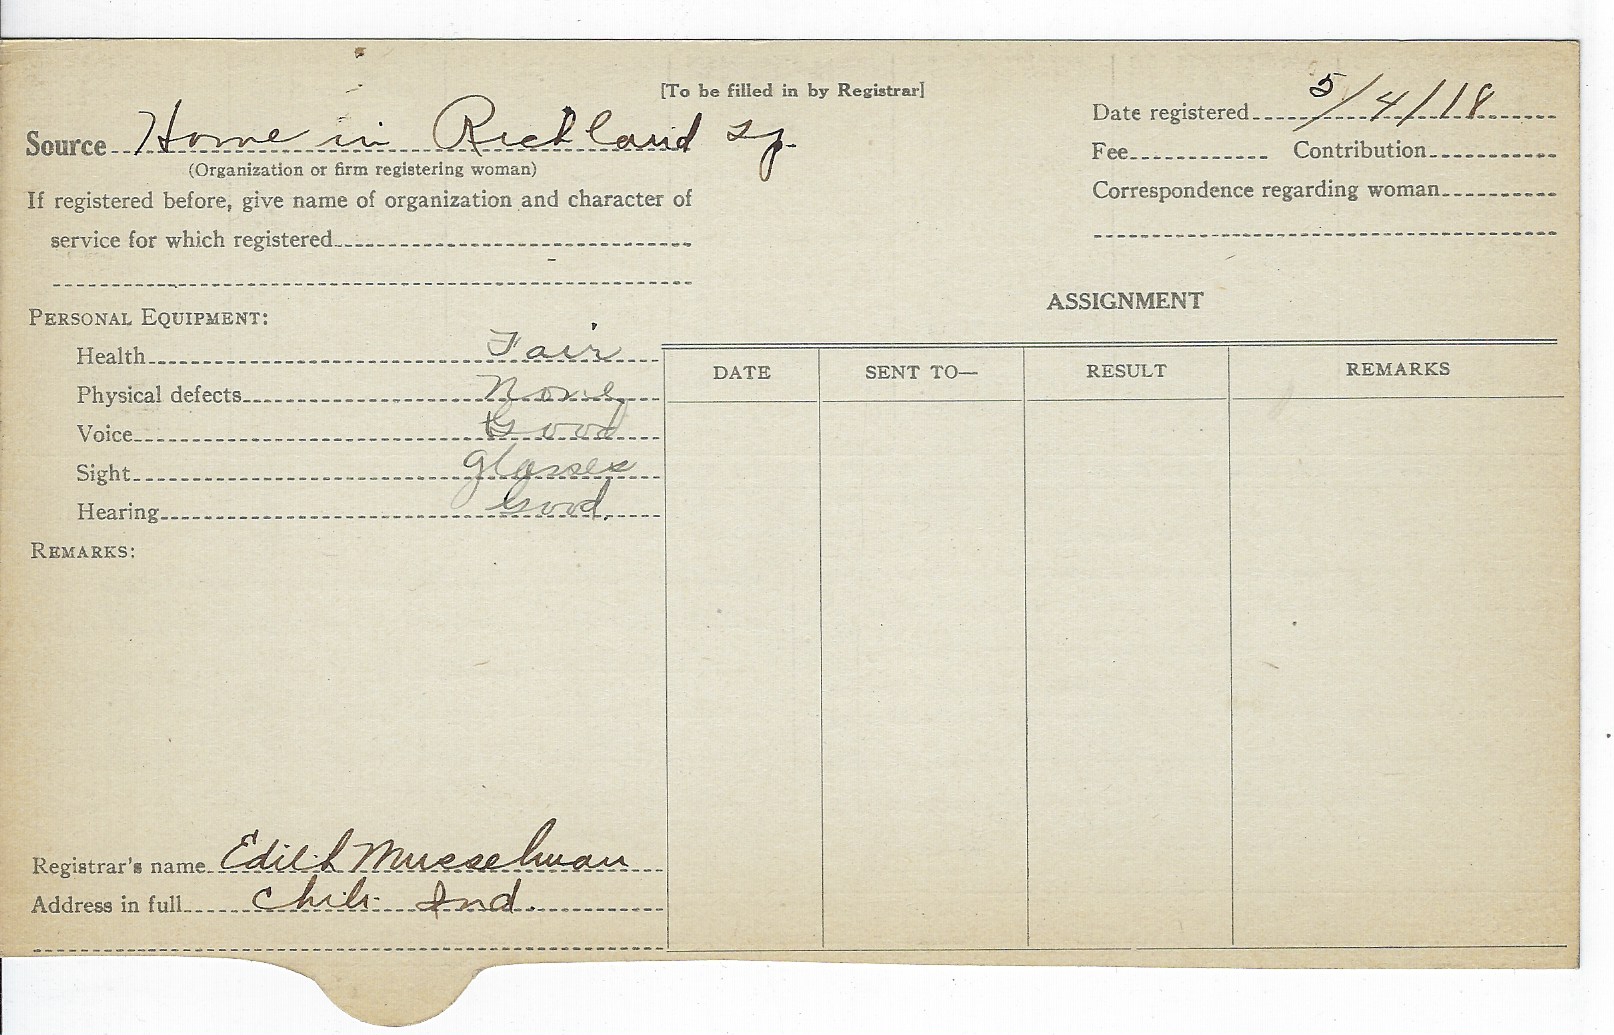 [To be filled in by Registrar]
Source Home in Richland Tp.
(Organization or firm registering woman)
Date registered 5/4/18
Fee Contribution
Correspondence regarding woman
If registered before, give name of organization and character of
service for which registered
ASSIGNMENT
PERSONAL EQUIPMENT:
Health Fair
Physical defects None
Voice Good
Sight Glasses
Hearing Good.
DATE SENT TO— RESULT REMARKS
REMARKS:
Registrar's name Edith Musselman
Address in full Chili Ind.